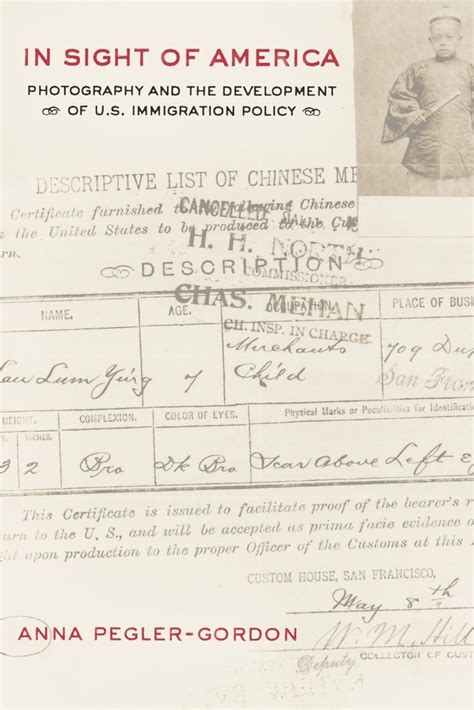 IN SIGHT OF AMERICA
PHOTOGRAPHY AND THE DEVELOPMENT
OF U.S. IMMIGRATION POLICY
DESCRIPTIVE LIST OF CHINESE ME
Certificate furnished to following Chinese
the United States to be produced to the
CANCELLED
H. H. NORTH
COMMISSIONER
DESCRIPTION
CHAS. MEHAN
CH. INSP. IN CHARGE
NAME. AGE. OCCUPATION. PLACE OF BUS
Lum Ying 7 Merchants Child 709
San Fran
HEIGHT. COMPLEXION. COLOR OF EYES. Physical Marks or Peculiarities for Identificatio
INCHES.
3 2 Bro Dk Bro Scar Above Left E
This Certificate is issued to facilitate proof of the bearer's r
turn to the U. S., and will be accepted as prima facie evidence o
ght upon production to the proper Officer of the Customs at this
CUSTOM HOUSE, SAN FRANCISCO,
May 8th
ANNA PEGLER-GORDON
W. M. Hill
Deputy COLLECTOR OF CUST